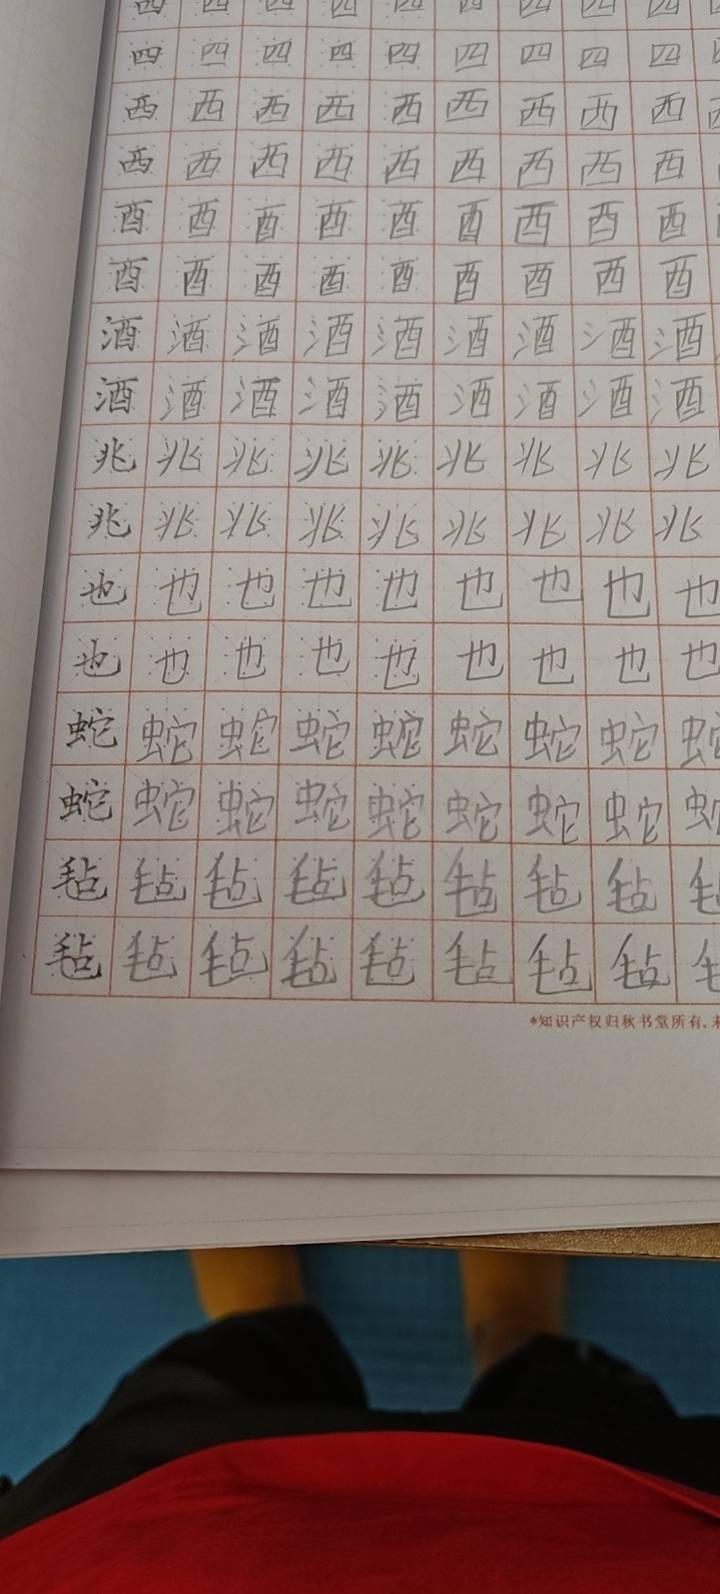 四 四 四 四 四 四 四 四 四
四 四 四 四 四 四 四 四 四
西 西 西 西 西 西 西 西 西
西 西 西 西 西 西 西 西 西
酉 酉 酉 酉 酉 酉 酉 酉 酉
酉 酉 酉 酉 酉 酉 酉 酉 酉
酒 酒 酒 酒 酒 酒 酒 酒 酒
酒 酒 酒 酒 酒 酒 酒 酒 酒
兆 兆 兆 兆 兆 兆 兆 兆 兆
兆 兆 兆 兆 兆 兆 兆 兆 兆
也 也 也 也 也 也 也 也 也
也 也 也 也 也 也 也 也 也
蛇 蛇 蛇 蛇 蛇 蛇 蛇 蛇 蛇
蛇 蛇 蛇 蛇 蛇 蛇 蛇 蛇
毡 毡 毡 毡 毡 毡 毡 毡
毡 毡 毡 毡 毡 毡 毡 毡
*知识产权归秋书堂所有,未